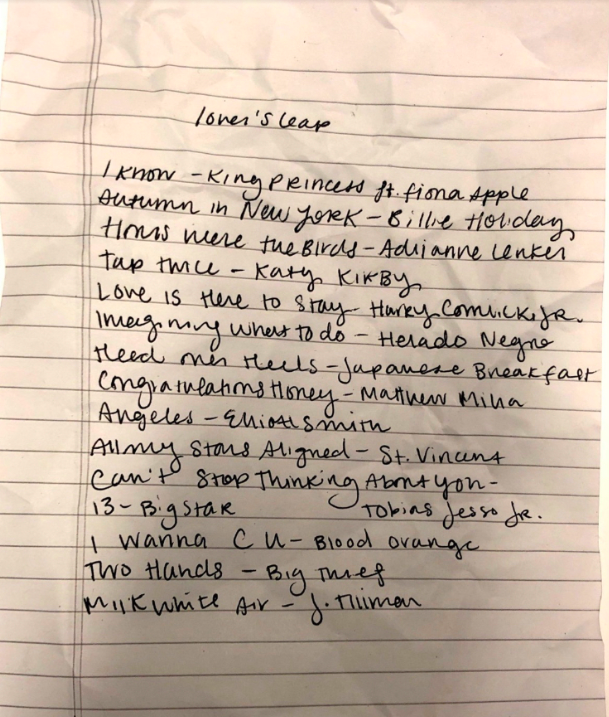 lover's leap
I know - King Princess ft. fiona apple
Autumn in New York - Billie Holiday
Hours were the Birds - Adrianne Lenker
tap twice - Katy Kirby
Love is Here to Stay - Harry Connick, JR.
Imagining what to do - Helado Negro
Head over Heels - Japanese Breakfast
Congratulations Honey - Matthew Milia
Angeles - Elliott Smith
All my Stars Aligned - St. Vincent
Can't Stop Thinking About you -
13 - Big Star Tobias Jesso Jr.
I Wanna C U - Blood orange
Two Hands - Big Thief
Milk white Air - J. Tillman